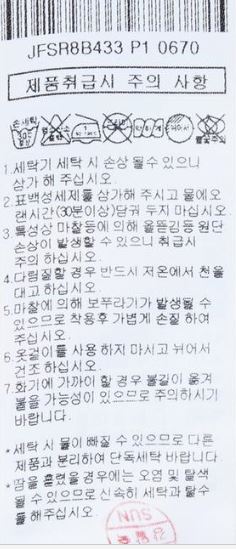 JFSR8B433 P1 0670
제품취급시 주의 사항
손세탁
1.세탁기 세탁 시 손상 될수 있으니
삼가 해 주십시오.
2.표백성세제를 삼가해 주시고 물에오
랜시간(30분이상)담궈 두지 마십시오.
3.특성상 마찰등에 의해 올뜯김등 원단
손상이 발생할 수 있으니 취급시
주의 하십시오.
4.다림질할 경우 반드시 저온에서 천을
대고 하십시오.
5.마찰에 의해 보푸라기가 발생될 수
있으므로 착용후 가볍게 손질 하여
주십시오.
6.옷걸이를 사용 하지 마시고 뉘어서
건조 하십시오.
7.화기에 가까이 할 경우 불길이 옮겨
붙을 가능성이 있으므로 주의하시기
바랍니다.
*세탁 시 물이 빠질 수 있으므로 다른
제품과 분리하여 단독세탁 바랍니다
*땀을 흘렸을 경우에는 오염 및 탈색
될 수 있으므로 신속히 세탁과 탈수
를 해주십시오.
SUN